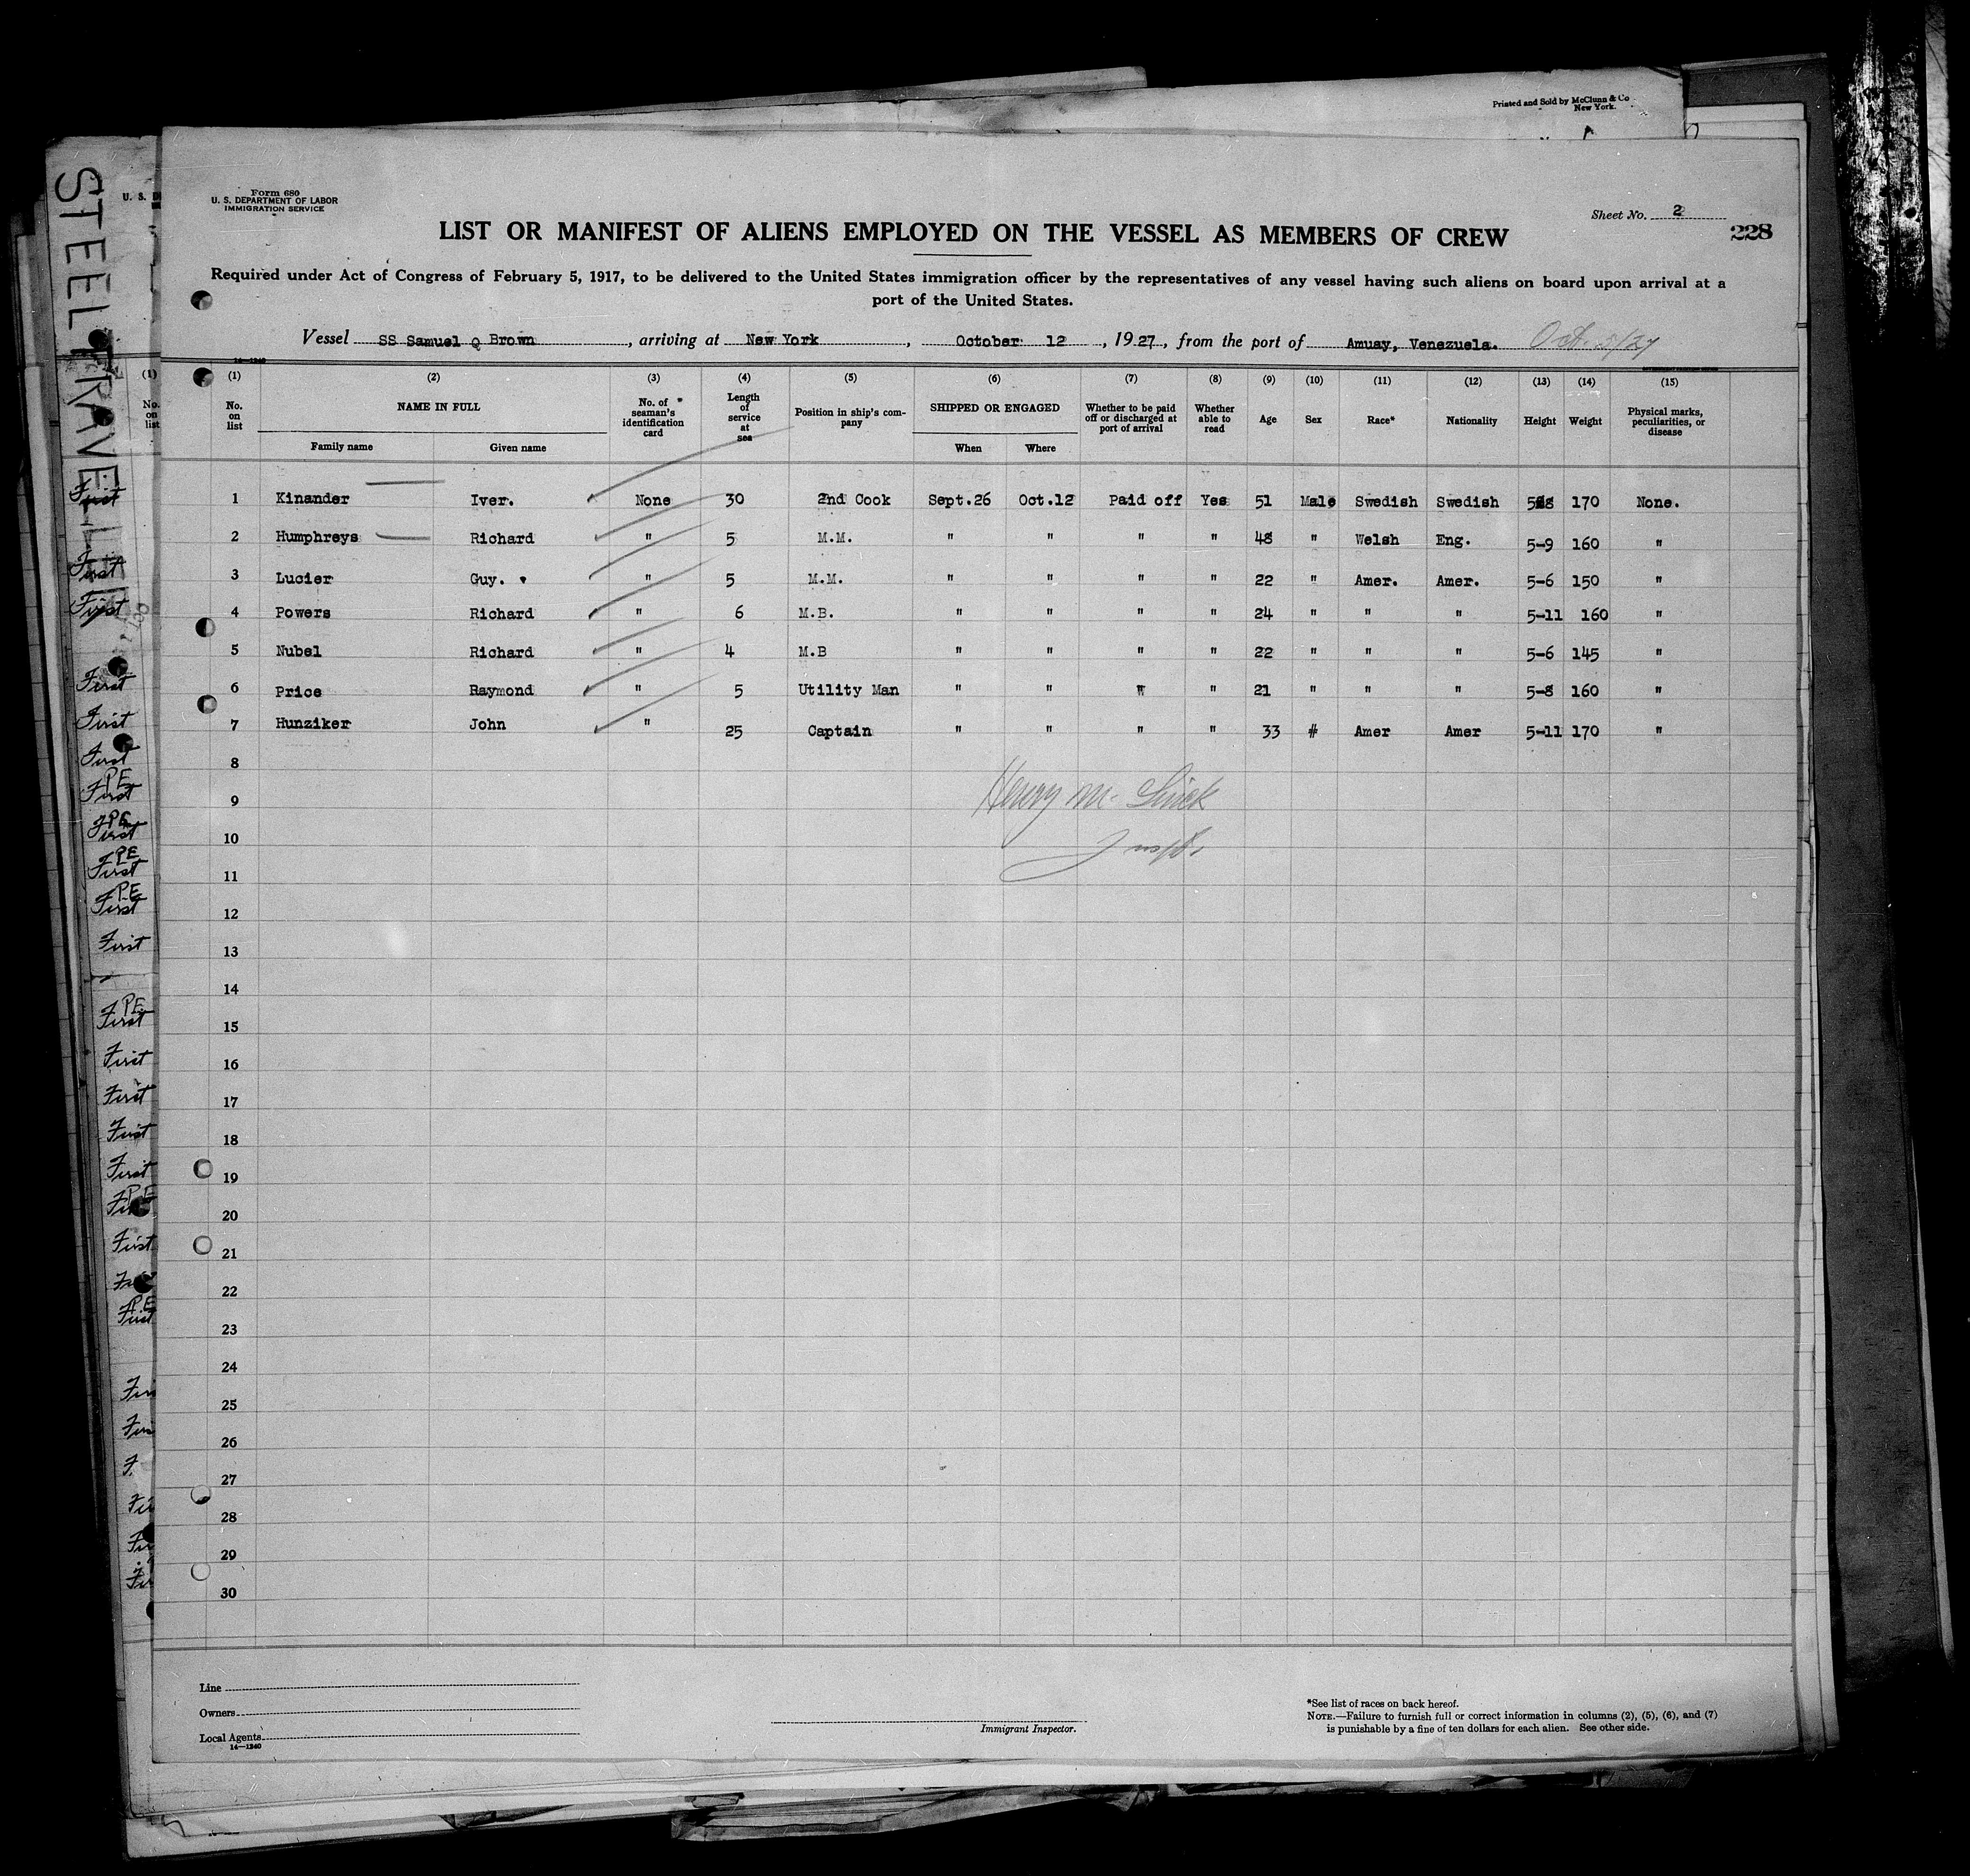 Printed and Sold by McClunn & Co
New York.
STEEL TRAVEL
Form 680
U. S. DEPARTMENT OF LABOR
IMMIGRATION SERVICE
Sheet No. 2
228
LIST OR MANIFEST OF ALIENS EMPLOYED ON THE VESSEL AS MEMBERS OF CREW
Required under Act of Congress of February 5, 1917, to be delivered to the United States immigration officer by the representatives of any vessel having such aliens on board upon arrival at a
port of the United States.
Vessel SS Samuel Q Brown, arriving at New York, October 12, 1927, from the port of Amuay, Venezuela. Oct. 5/27
14-1240
(1) (2) (3) (4) (5) (6) (7) (8) (9) (10) (11) (12) (13) (14) (15)
No. on list NAME IN FULL No. of * seaman's identification card Length of service at sea Position in ship's company SHIPPED OR ENGAGED Whether to be paid off or discharged at port of arrival Whether able to read Age Sex Race* Nationality Height Weight Physical marks, peculiarities, or disease
Family name Given name When Where
1 Kinander Iver. None 30 2nd Cook Sept.26 Oct.12 Paid off Yes 51 Male Swedish Swedish 170 None.
2 Humphreys Richard " 5 M.M. " " " " 48 " Welsh Eng. 5-9 160 "
3 Lucier Guy. " 5 M.M. " " " " 22 " Amer. Amer. 5-6 150 "
4 Powers Richard " 6 M.B. " " " " 24 " " " 5-11 160 "
5 Nubel Richard " 4 M.B " " " " 22 " " " 5-6 145 "
6 Price Raymond " 5 Utility Man " " " " 21 " " " 5-8 160 "
7 Hunziker John " 25 Captain " " " " 33 # Amer Amer 5-11 170 "
8
Henry M.
9
10
Inspt.
11
12
13
14
15
16
17
18
19
20
21
22
23
24
25
26
27
28
29
30
Line
Owners
Local Agents
14-1240
Immigrant Inspector.
*See list of races on back hereof.
NOTE.—Failure to furnish full or correct information in columns (2), (5), (6), and (7)
is punishable by a fine of ten dollars for each alien. See other side.
U. S. D
(1)
No. on list
First
First
First
First
First
First
PE
First
PE
First
PE
First
PE
First
First
PE
First
First
First
First
First
PE
First
PE
First